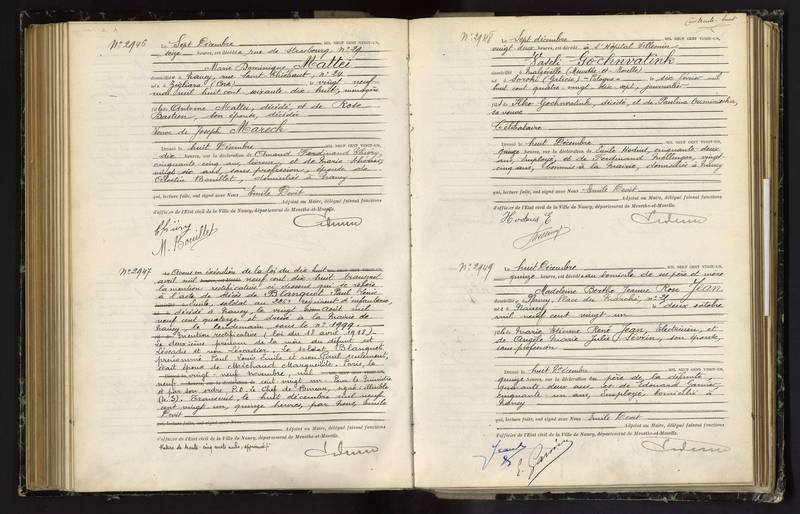 N° 2946
Le Sept Décembre MIL NEUF CENT VINGT-UN,
seize heures, est décédée rue de Strasbourg, N° 29
Marie Dominique Mattei
domiciliée à Nancy, rue Saint Thiébaut, N° 24
née à Zigliara (Corse) vingt neuf
mai mil huit cent soixante dix huit, ménagère
fille de Antoine Mattei, décédé, et de Rose
Bastien, son épouse, décédée
Veuve de Joseph Marech
Dressé le huit Décembre MIL NEUF CENT VINGT-UN,
dix heures, sur la déclaration de Armand Ferdinand Thiéry,
cinquante cinq ans, et de Marie
vingt six ans, sans profession, épouse de
Célestin Bouillet, domiciliés à Nancy
qui, lecture faite, ont signé avec Nous Emile Dovit
Adjoint au Maire, délégué faisant fonctions
d'officier de l'Etat civil de la Ville de Nancy, département de Meurthe-et-Moselle.
Thiéry
M. Bouillet
N° 2947
Acome en exécution de la loi du dix huit
avril mil neuf cent dix huit transcrit
la mention rectificative ci dessous qui se réfère
à l'acte de décès de Blanquet Paul Louis
Emile, soldat au régiment d'infanterie,
décédé à Nancy, le vingt août mil
neuf cent quatorze et dressé à la Mairie de
Nancy, le lendemain sous le n° 1999
Mention rectificative (loi du 18 avril 1918).
Le deuxième prénom de la mère du défunt est
Léocadie et non Léocadier. Le soldat Blanquet
prénommé Paul Louis Emile et non Paul seulement,
était époux de Michaud Marguerite. Paris, le
vingt-neuf novembre, mil
neuf cent vingt un. Pour le Ministre
et par son ordre, P.O. le Chef de Bureau, signé: illisible
(L.S). Transcrit, le huit décembre mil neuf
cent vingt un, quinze heures, par Nous, Emile
Dovit
qui, lecture faite, ont signé avec Nous
Adjoint au Maire, délégué faisant fonctions
d'officier de l'Etat civil de la Ville de Nancy, département de Meurthe-et-Moselle.
N° 2948
Le Sept décembre MIL NEUF CENT VINGT-UN,
vingt deux heures, est décédé à l'Hôpital Villemin
Vasch Gochnvalink
domicilié à Malzéville (Meurthe et Moselle)
né à Soroki (Galicie) - Pologne, le dix février mil
huit cent quatre vingt dix sept,
fils de Gochnvalink, décédé, et de Pauline
sa veuve
Célibataire
Dressé le huit Décembre MIL NEUF CENT VINGT-UN,
heures, sur la déclaration de Emile Hodiné, cinquante deux
ans, employé, et de Ferdinand Mellinger, vingt
cinq ans, commis à la Mairie, domiciliés à Nancy
qui, lecture faite, ont signé avec Nous Emile Dovit
Adjoint au Maire, délégué faisant fonctions
d'officier de l'Etat civil de la Ville de Nancy, département de Meurthe-et-Moselle.
N° 2949
Le huit Décembre MIL NEUF CENT VINGT-UN,
quinze heures, est décédée au domicile de ses père et mère
Madeleine Berthe Jeanne Rose Jean
domiciliée à Nancy, Place du Marché, n° 21
née à Nancy deux octobre
mil neuf cent vingt un
fille de Marie Etienne René Jean, Electricien, et
de Angèle Marie Julie Sevein, son épouse,
sans profession
Dressé le huit Décembre MIL NEUF CENT VINGT-UN,
quinze heures, sur la déclaration du père de la défunte,
trente deux ans, et de Edouard Garnier,
cinquante un ans, employé, domiciliés à
Nancy
qui, lecture faite, ont signé avec Nous Emile Dovit
Adjoint au Maire, délégué faisant fonctions
d'officier de l'Etat civil de la Ville de Nancy, département de Meurthe-et-Moselle.